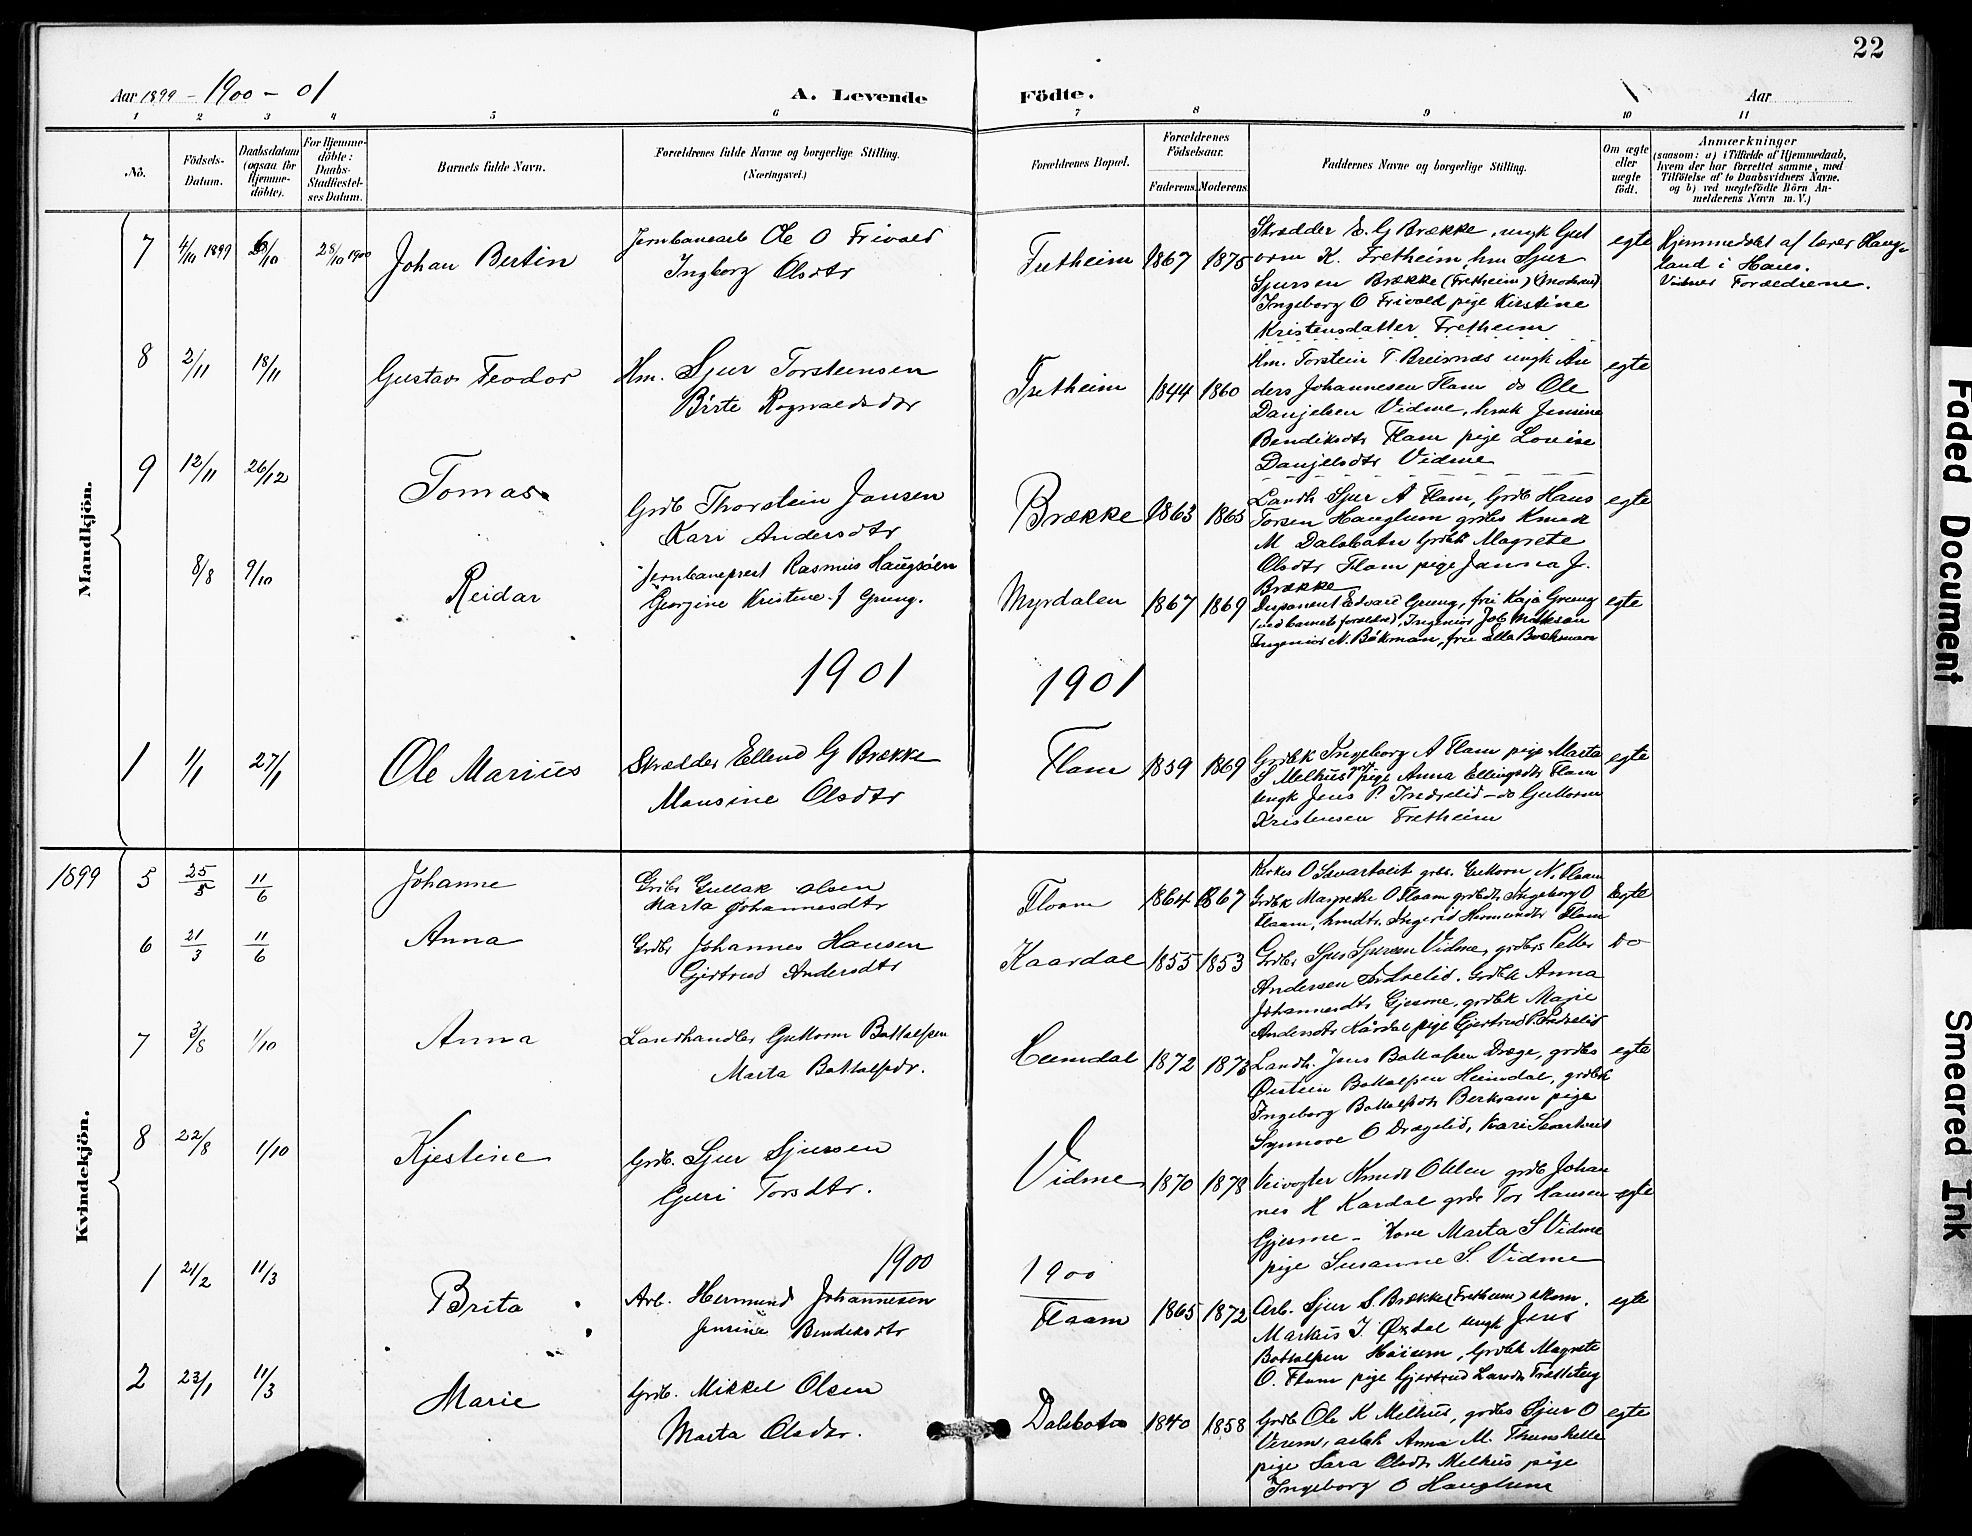 22
Aar 1899 - 1900 - 01
A. Levende Födte.
Aar
1 2 3 4 5 6 7 8 9 10 11
No.
Födsels-Datum.
Daabsdatum (ogsaa for Hjemme-döbte).
For Hjemme-döbte: Daabs-Stadfæstel-ses Datum.
Barnets fulde Navn.
Forældrenes fulde Navne og borgerlige Stilling.
(Næringsvei.)
Forældrenes Bopæl.
Forældrenes Födselsaar.
Faderens. Moderens.
Faddernes Navne og borgerlige Stilling.
Om ægte eller uægte födt.
Anmærkninger
(saasom: a) i Tilfælde af Hjemmedaab,
hvem der har forrettet samme, med
Tilföielse af to Daabsvidners Navne.
og b) ved uægtefödte Börn An-
melderens Navn m. V.)
Mandkjön.
7 4/10 1899 6/10 28/10 1900 Johan Bertin
Jernbanearb Ole O Frivold
Ingborg Olsdtr
Fretheim 1867 1875
Skrædder E. G Brække, ungk Gut
orm K. Fretheim, hm Sjur
Sjursen Brække (Fretheim) (Moderen)
Ingeborg O Frivold pige Kirstine
Kristensdatter Fretheim
egte
Hjemmedøbt af lærer Haug-
land i Haus.
Vidner Forældrene.
8 2/11 18/11 Gustav Teodor
Hm. Sjur Torsteinsen
Birte Rognvaldsdtr
Fretheim 1844 1860
Hm. Torstein T. Breisnæs ungk An
ders Johannesen Flam do Ole
Danjelsen Vidme, hmk Jensine
Bendiksdtr Flam pige Lovise
Danjelsdtr Vidme
egte
9 12/11 26/12 Tomas
Grdb Thorstein Jansen
Kari Andersdtr
Brække 1863 1865
Landh. Sjur A Flam, Grdb Hans
Torsen Hauglum grdbs Knud
M Dalsbotn Grdbk Magrete
Olsdtr Flam pige Janna J.
Brække
egte
8/8 9/10 Reidar
Jernbaneprest Rasmus Haugsøen
Georgine Kristine f Grung.
Myrdalen 1867 1869
Disponent Edvard Grung, fru Kaja Grung
(ved barnets forældre), Ingeniør Job
Ingeniør N. Bökman, fru Ella Bochman
egte
1901
1901
1 1/1 27/1 Ole Marius
Skrædder Ellend G Brække
Monsine Olsdtr
Flam 1859 1869
Grdbk Ingeborg A Flam pige Marta
S Melhus pige Anna Ellingsdtr Flam
Ungk Jens P. Indrelid - do Guttorm
Kristensen Fretheim
egte
Kvindekjön.
1899 5 25/5 11/6 Johanne
Grdbr Gullak Olsen
Marta Johannesdtr
Flaam 1864 1867
Kirkes O Svartveit grbr. Guttorm N. Flaam
Grdbk Magrethe O Flaam grdbdtr Ingeborg O
Flaam, hmdtr. Ingerid Hermundtr Flam
Egte
6 21/3 11/6 Anna
Grdbr Johannes Hansen
Gjertrud Andersdtr
Kaardal 1855 1853
Grdbr Sjur Sjursen Vidme, grdbrs Petter
Andersen Indrelid. Grdbk Anna
Johannesdtr Gjesme, grdbk Marie
Andersdtr Kårdal pige Gjertrud P. Indrelid
Do
7 3/8 1/10 Anna
Landhandler Guttorm Bottolfsen
Marta Bottolfsdr.
Heimdal 1872 1873
Landh. Jens Bottolfsen Dræge, grdbs
Øistein Bottolfsen Heimdal, grdbk
Ingeborg Bottolfsdtr Berkvam pige
Synnove O Drægelid, Kari Svartveit
egte
8 22/8 1/10 Kjestine
Grdb. Sjur Sjursen
Guri Torsdtr.
Vidme 1870 1878
Veivogter Knud Ohlen grdb Johan
nes H Kardal grdb Tor Hansen
Gjesme - Kone Marta S Vidme
pige Susanne S. Vidme
egte
1900
1900
1 21/2 11/3 Brita
Arb. Hermund Johannesen
Jensine Bendiksdtr
Flaam 1865 1872
Arb. Sjur S. Brække (Fretheim) skom.
Markus J. Øxdal ungk Jens
Bottolfsen Høiem, Grdbk Magrete
O. Flam pige Gjertrud Larsdtr Tretteteig
egte
2 23/1 11/3 Marie
Grdb. Mikkel Olsen
Marta Olsdtr.
Dalsbotn 1840 1858
Grdb Ole K Melhus, grdbs Sjur O
Verem, arbk Anna M. Thunshelle
pige Sara Olsdtr Melhus pige
Ingeborg O Hauglum
egte
Faded Document
Smeared Ink